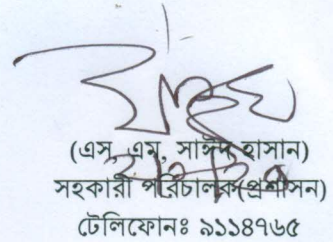 (এস, এম, সাঈদ হাসান)
সহকারী পরিচালক (প্রশাসন)
টেলিফোনঃ ৯১১৪৭৬৫